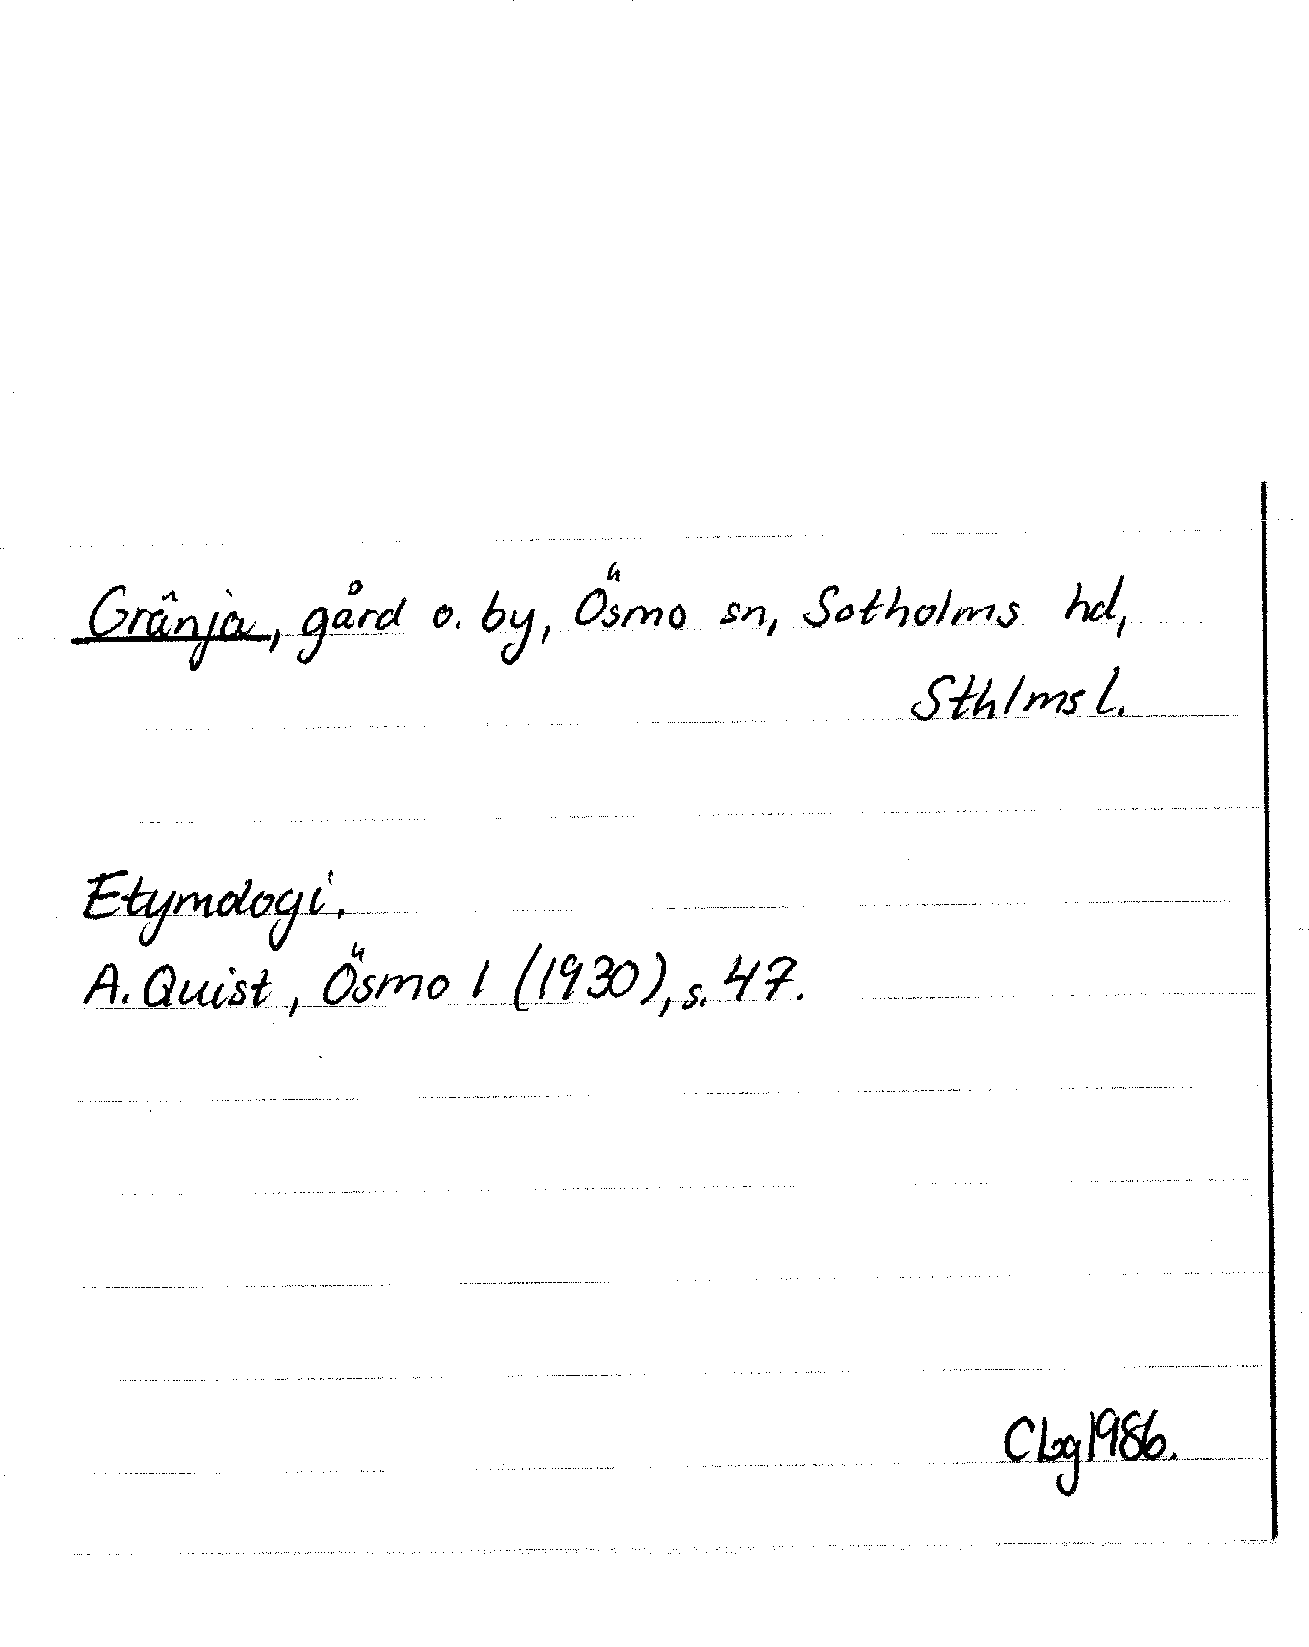 Gränja, gård o. by, Ösmo sn, Sotholms hd,
Sthlms l.
Etymologi.
A. Quist, Ösmo 1 (1930), s. 47.
CLbg 1986.